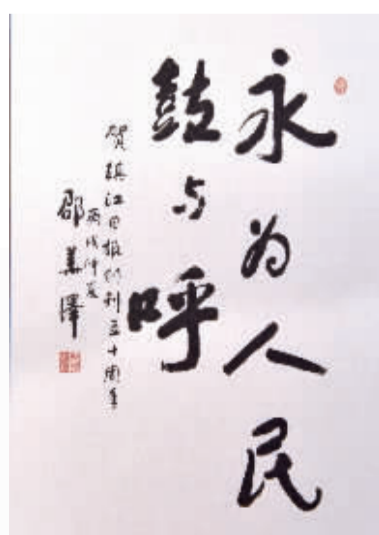 永为人民
鼓与呼
贺镇江日报创刊五十周年
丙戌仲夏
邵华泽